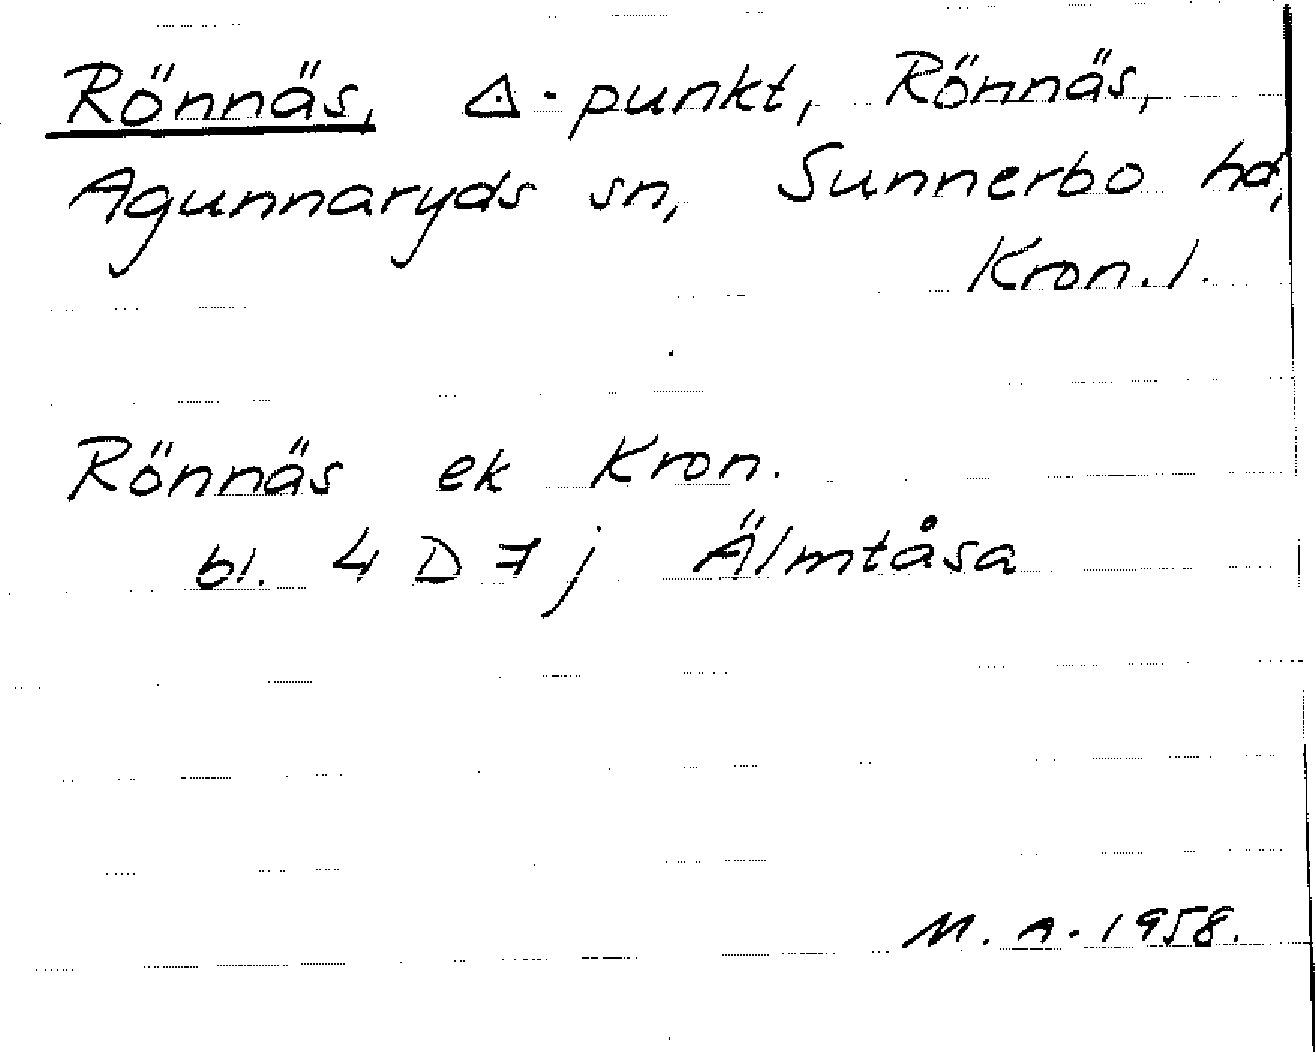 Rönnäs, △-punkt, Rönnäs,
Agunnaryds sn, Sunnerbo hd,
Kron. l.
Rönnäs ek Kron.
bl. 4 D 7 j Älmtåsa
M. A. 1958.